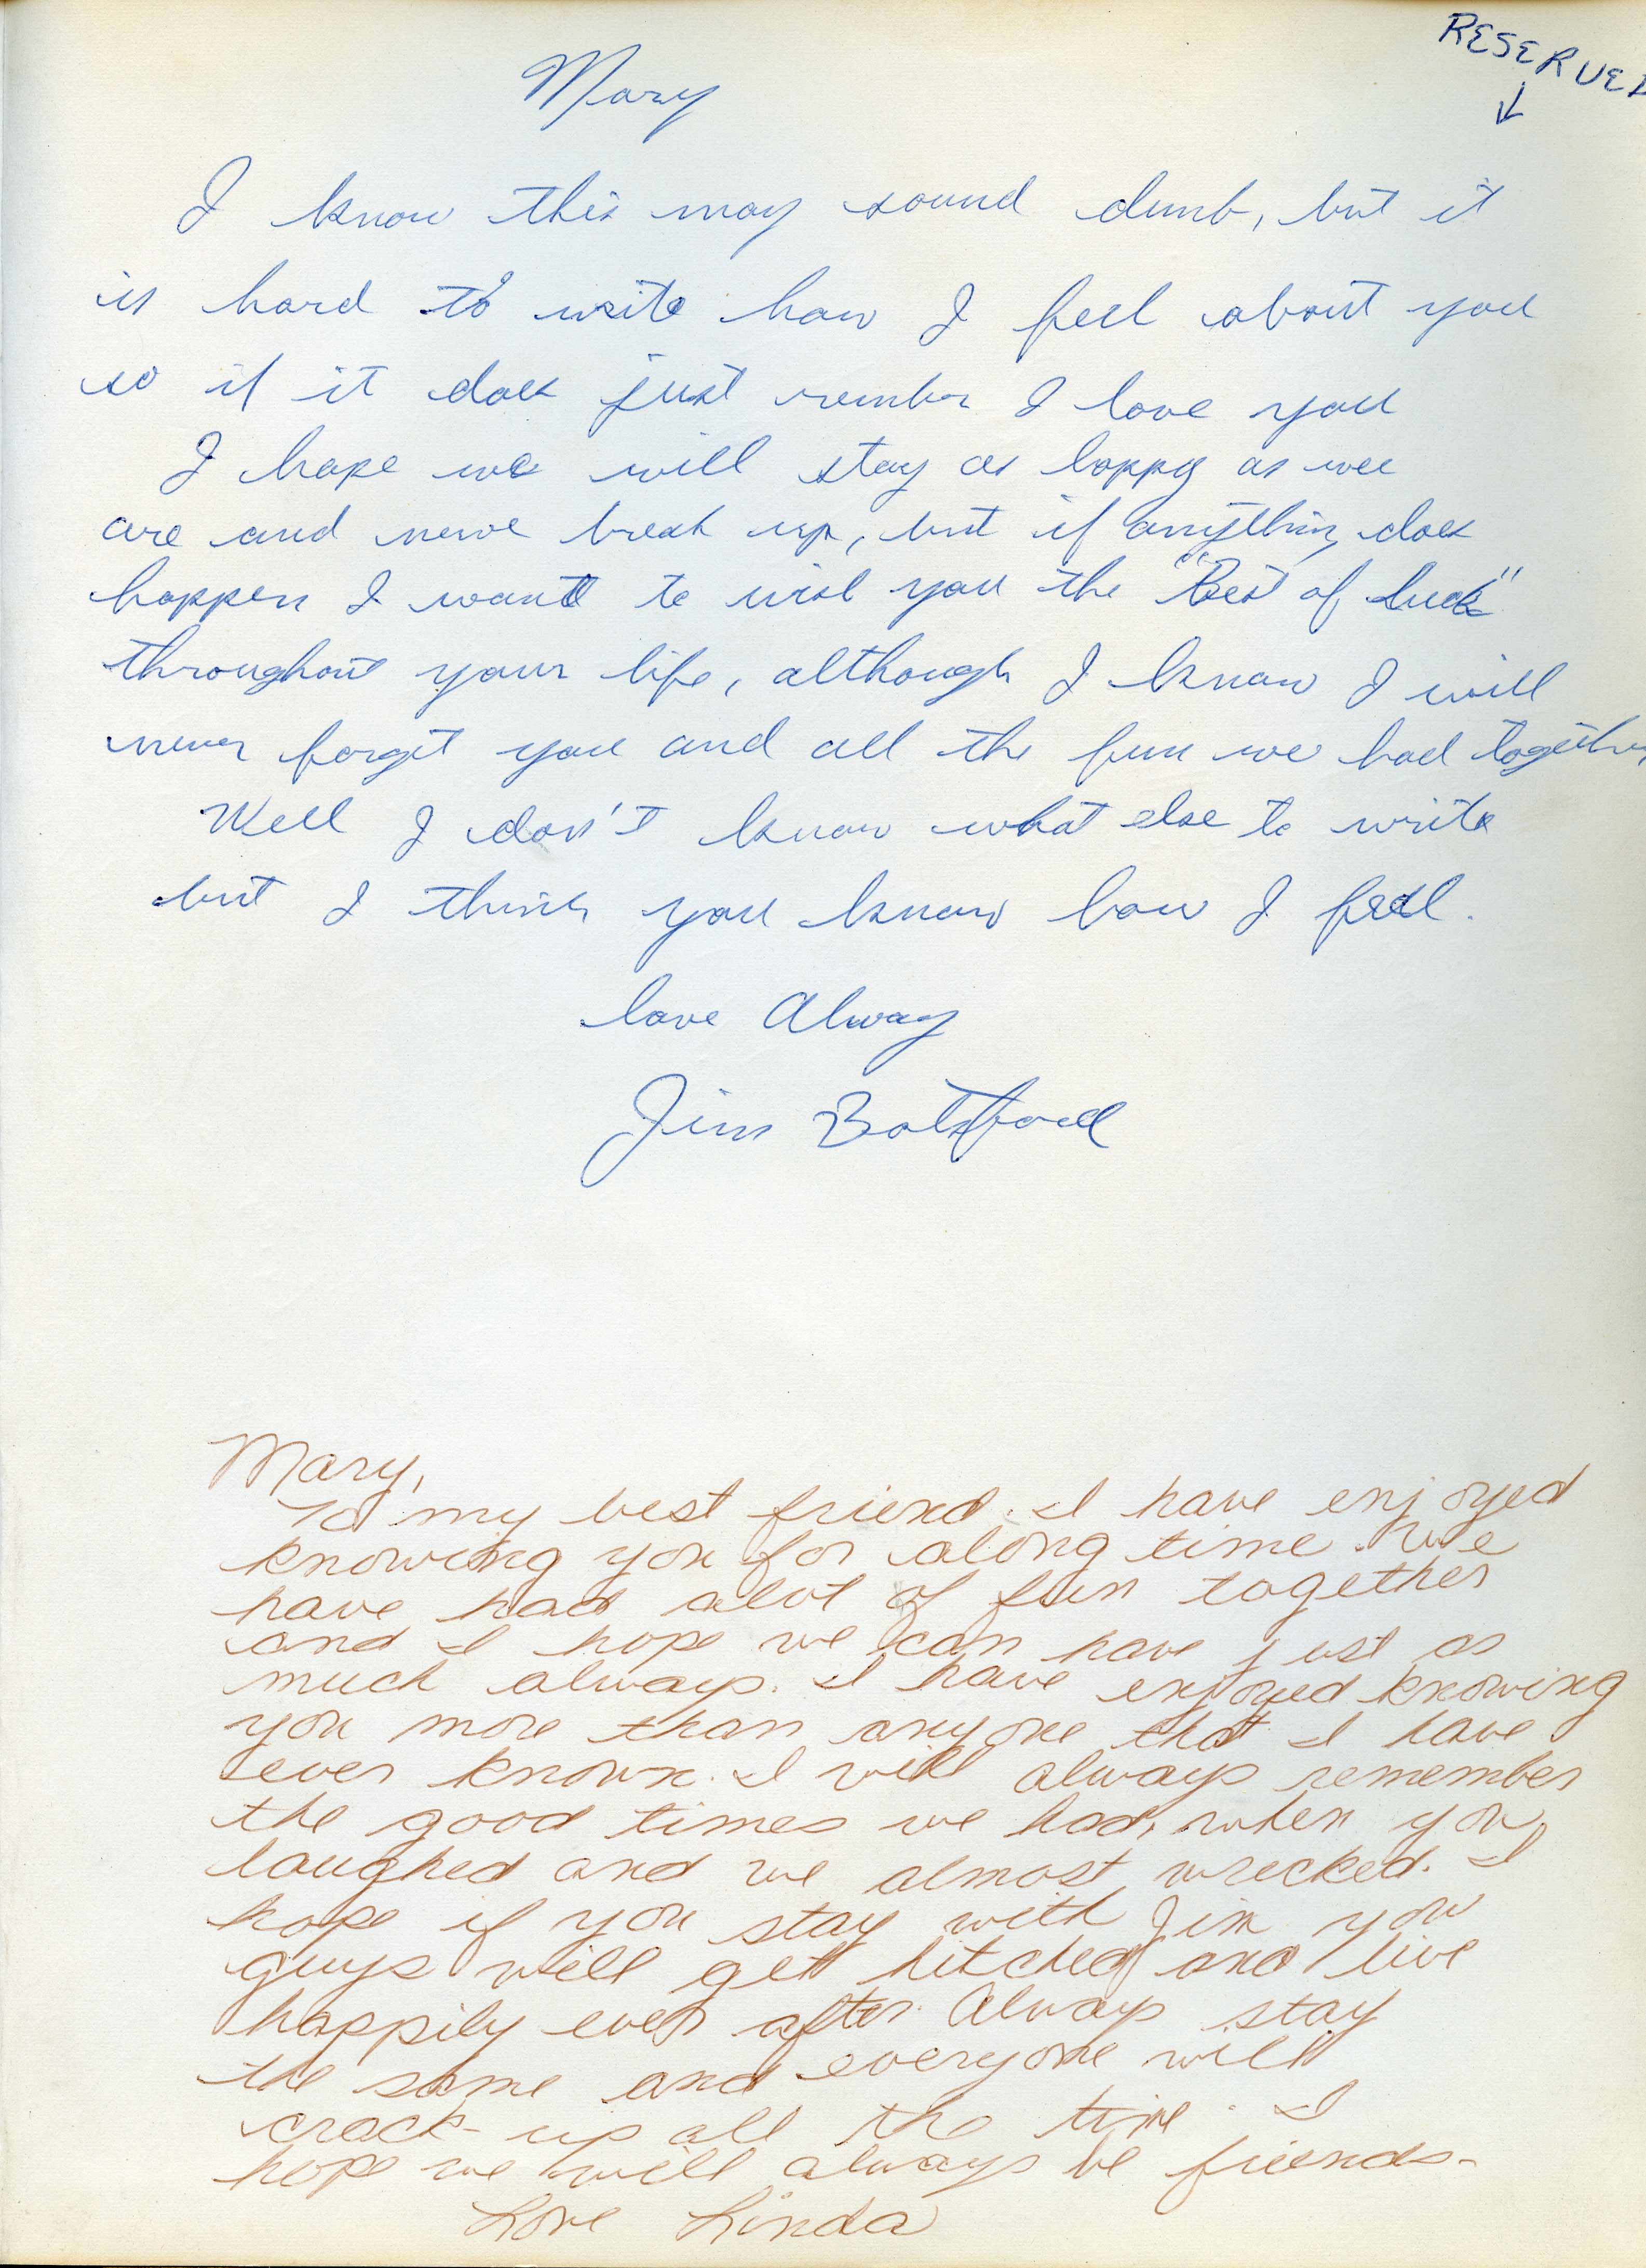 RESERVED
↓
Mary
I know this may sound dumb, but it
is hard to write how I feel about you
so if it does just rember I love you
I hope we will stay as happy as wee
are and neve break up, but if anything does
happen I want to wish you the "Best of luck"
throughout your life, although I know I will
never forget you and all the fun we had together,
Well I don't know what else to write
but I think you know how I feel.
love Alway
Jim Botsford
Mary,
To my best friend. I have enjoyed
knowing you for along time. We
have had alot of fun together
and I hope we can have just as
much always. I have enjoyed knowing
you more than anyone that I have
ever known. I will always remember
the good times we had, when you
laughed and we almost wrecked. I
hope if you stay with Jim you
guys will get hitched and live
happily ever after. Always stay
the same and everyone will
crack-up all the time. I
hope we will always be friends-
Love Linda